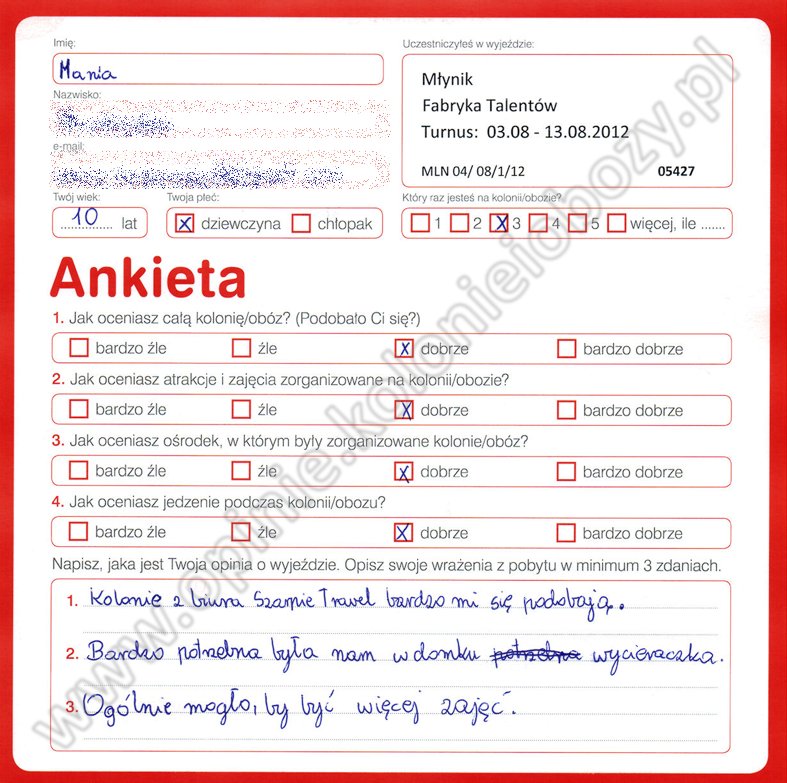 Imię:
Mania
Nazwisko:
e-mail:
Twój wiek:
10 lat
Twoja płeć:
X dziewczyna chłopak
Uczestniczyłeś w wyjeździe:
Młynik
Fabryka Talentów
Turnus: 03.08 - 13.08.2012
MLN 04/ 08/1/12 05427
Który raz jesteś na kolonii/obozie?
1 2 X 3 4 5 więcej, ile .......
Ankieta
1. Jak oceniasz całą kolonię/obóz? (Podobało Ci się?)
bardzo źle źle X dobrze bardzo dobrze
2. Jak oceniasz atrakcje i zajęcia zorganizowane na kolonii/obozie?
bardzo źle źle X dobrze bardzo dobrze
3. Jak oceniasz ośrodek, w którym były zorganizowane kolonie/obóz?
bardzo źle źle X dobrze bardzo dobrze
4. Jak oceniasz jedzenie podczas kolonii/obozu?
bardzo źle źle X dobrze bardzo dobrze
Napisz, jaka jest Twoja opinia o wyjeździe. Opisz swoje wrażenia z pobytu w minimum 3 zdaniach.
1. Kolonie z biura Szarpie Travel bardzo mi się podobają.
2. Bardzo potrzebna była nam w domku potrzebna wycieraczka.
3. Ogólnie mogło, by być więcej zajęć.
www.opinie.kolonieiobozy.pl